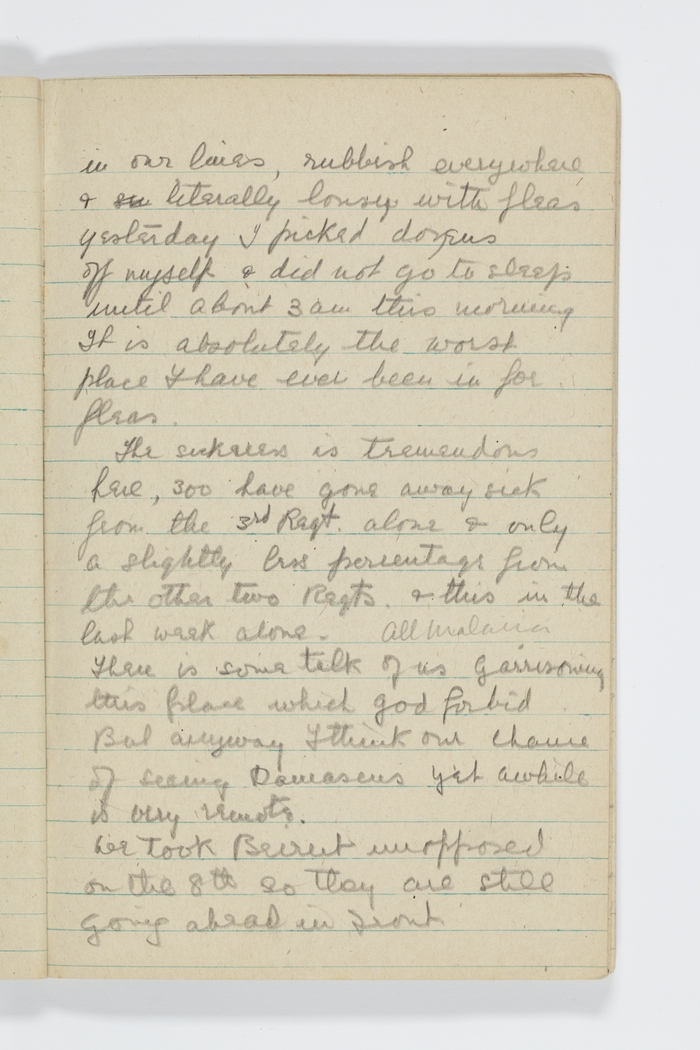 in our lines, rubbish everywhere
& literally lousy with fleas
yesterday I picked dozens
off myself & did not go to sleep
until about 3 am this morning
It is absolutely the worst
place I have ever been in for
fleas.
The sickness is tremendous
here, 300 have gone away sick
from the 3rd Regt. alone & only
a slightly less percentage from
the other two Regts. & this in the
last week alone. All Malaria
There is some talk of us Garrisoning
this place which god forbid
But anyway I think our chance
of seeing Damascus yet awhile
is very remote.
We took Beirut unopposed
on the 8th so they are still
going ahead in front